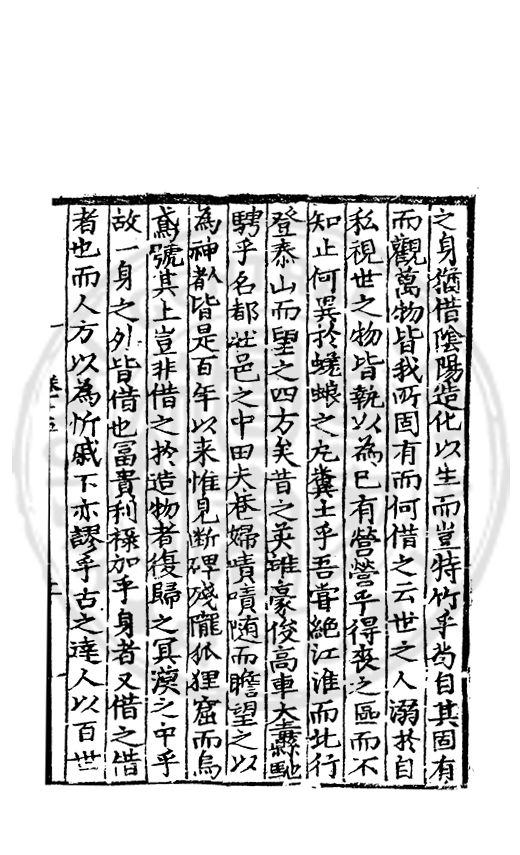 之身猶借陰陽造化以生而豈特竹乎茍自其固有
而觀萬物皆我所固有而何借之云世之人溺於自
私視世之物皆執以為已有營營乎得喪之區而不
知止何異於蟾蜋之丸糞土乎吾嘗絶江淮而北行
登泰山而望之四方矣昔之英雄豪俊高車大纛馳
騁乎名都壯邑之中田夫巷婦嘖嘖随而瞻望之以
為神人皆是百年以来惟見断碑殘隴狐狸窟而烏
鳶號其上豈非借之於造物者復歸之冥漠之中乎
故一身之外皆借也冨貴利祿加乎身者又借之借
者也而人方以為忻戚下亦謬乎古之達人以百世
卷十五